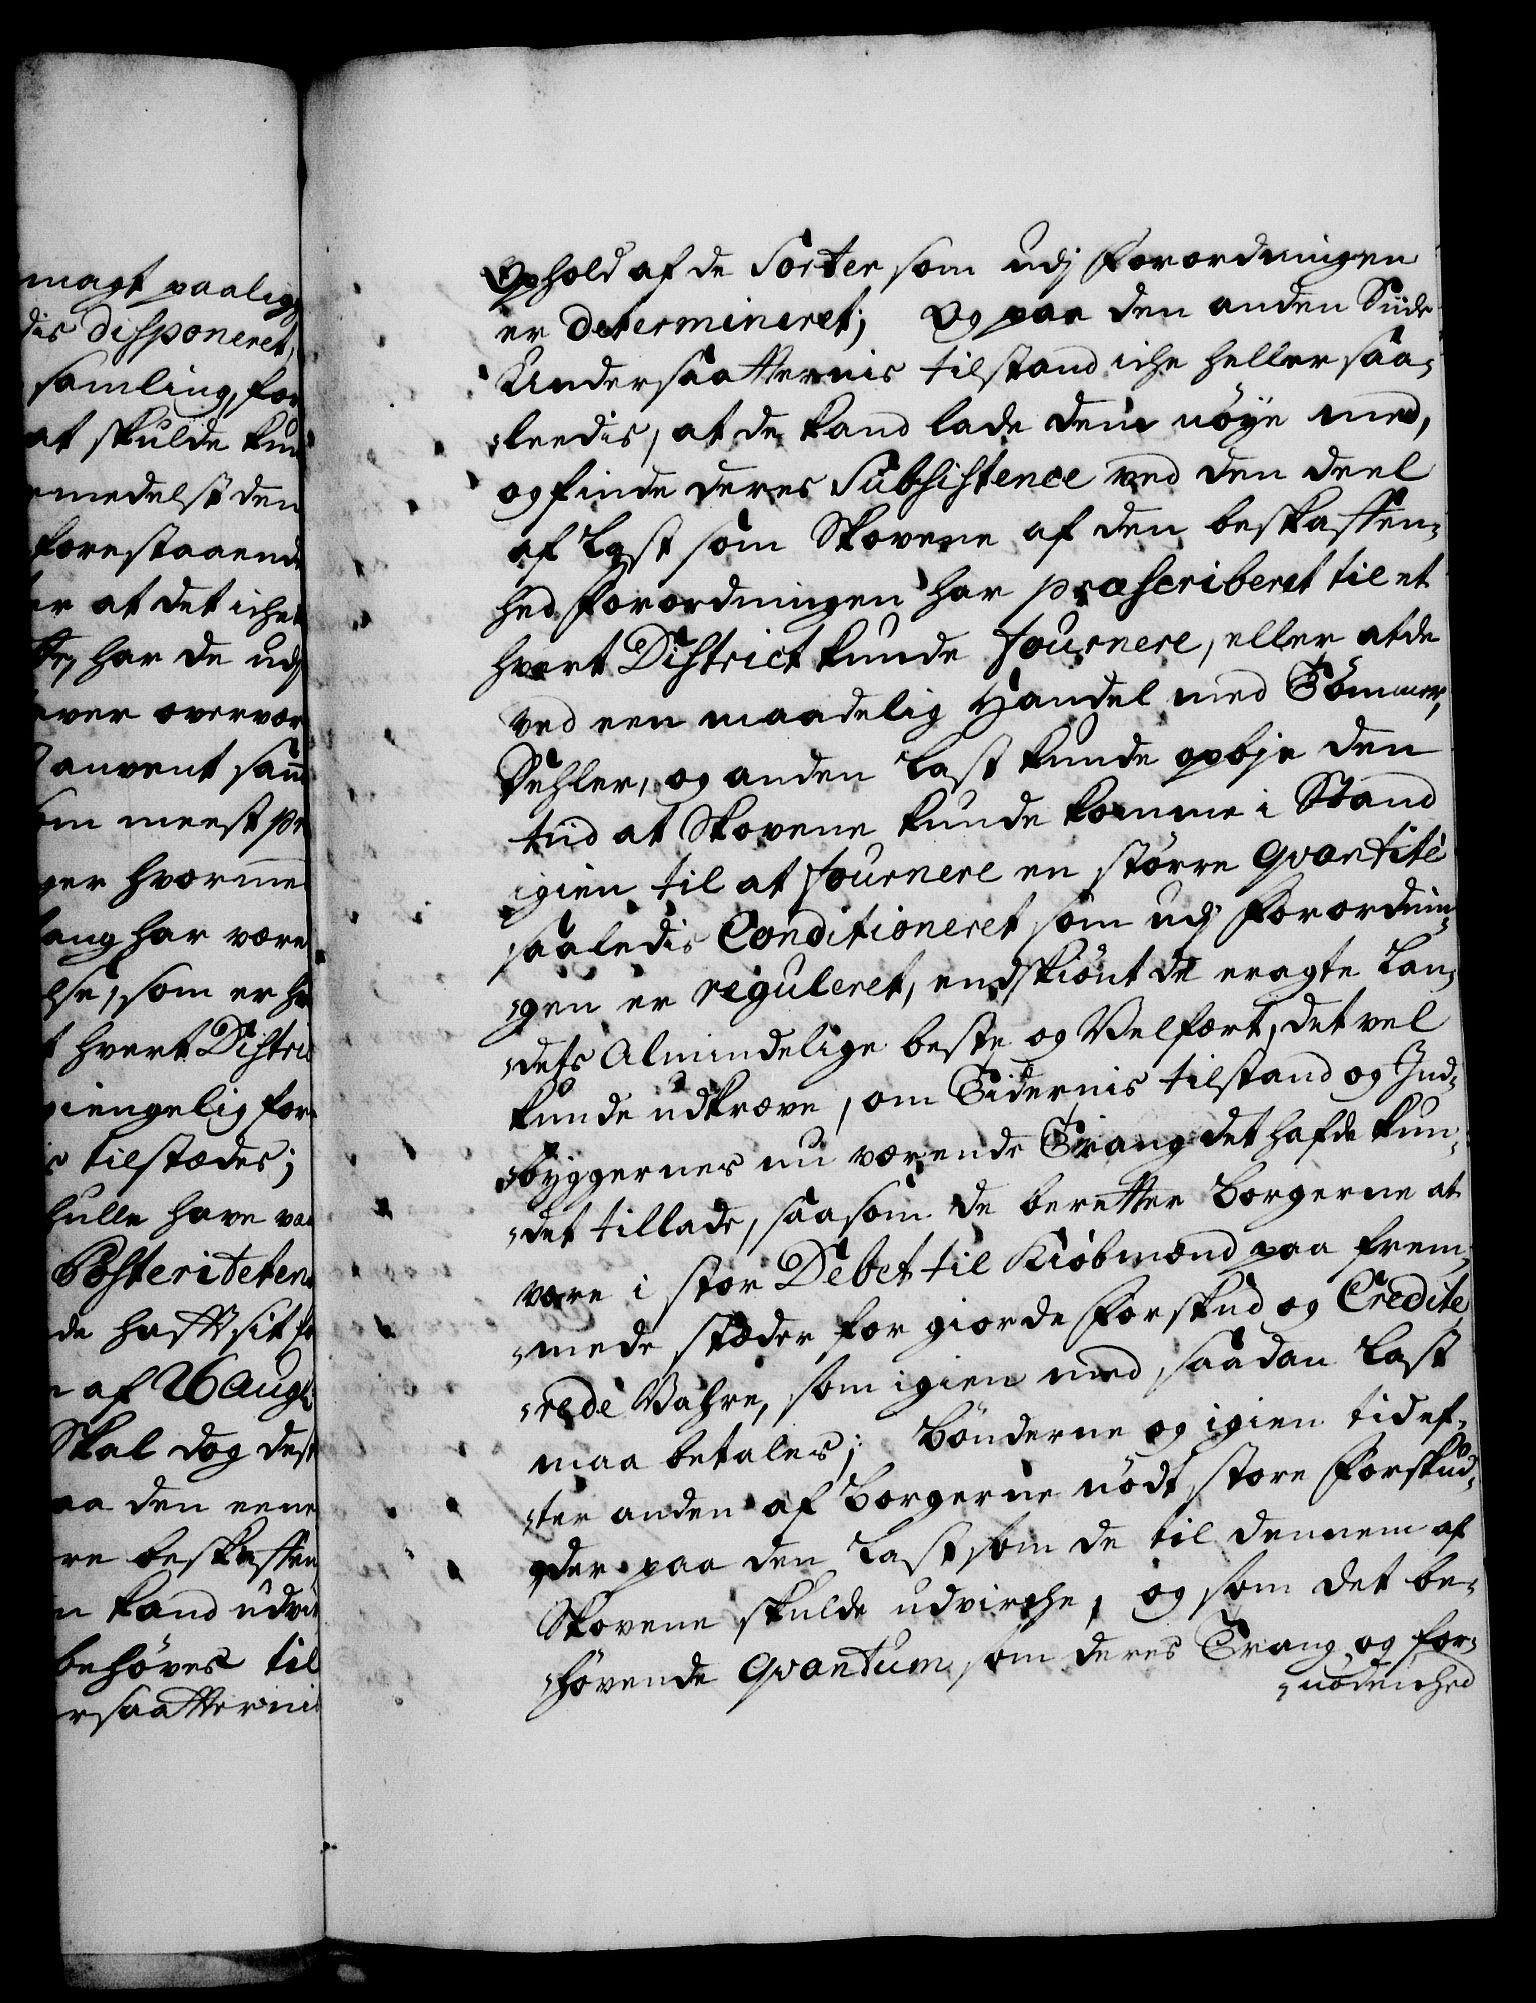 magt paalig
dis disponeret,
samling, for
at skulde kun
medelst den
forestaaende
er at det iche
har de udj
over overvær
anvent saa
om meest pr
ger hvorme
ang har være
lse, som er h
t hvert Distric
giengelig for
s tilstædes;
kulle have va
Posteriteten
de hafft sit f
af 26 Aug:
Skal dog des
aa den eene
re beskaffen
n kand udvi
behøves til
rsaatternis
Ophold af de Sorter som udj Forordningen
er determineret; Og paa den anden Siide
Undersaatternis tilstand iche heller saa-
leedis, at de kand lade dem nøye med,
og finde deres Subsistence ved den deel
af Last som Skovene af den beskaffen-
hed Forordningen har præscriberet til et
hvert District kunde fournere, eller at de
ved een maadelig Handel med Tømmer,
Dehler, og anden Last kunde opbje den
tid at Skovene kunde komme i Stand
igien til at fournere en større Qvantité
saaledis Conditioneret som udj Forordnin-
gen er reguleret, endskiønt de eragte Lan-
dets Almindelige beste og Velfært, det vel
kunde udkræve, om Tidernis tilstand og Ind-
byggernes nu værende Trang det hafde kun-
det tillade, saasom de beretter Borgerne at
være i stor Debet til Kiøbmænd paa frem-
mede stæder for giorde Forskud og Credite-
rede Vahre, som igien med saadan Last
maa betales; Bønderne og igien tid ef-
ter anden af Borgerne nødt store Forskud-
der paa den Last som de til dennem af
Skovene skulde udvirche, og som det be-
høvende Qvantum som deres Trang og for-
nødenhed